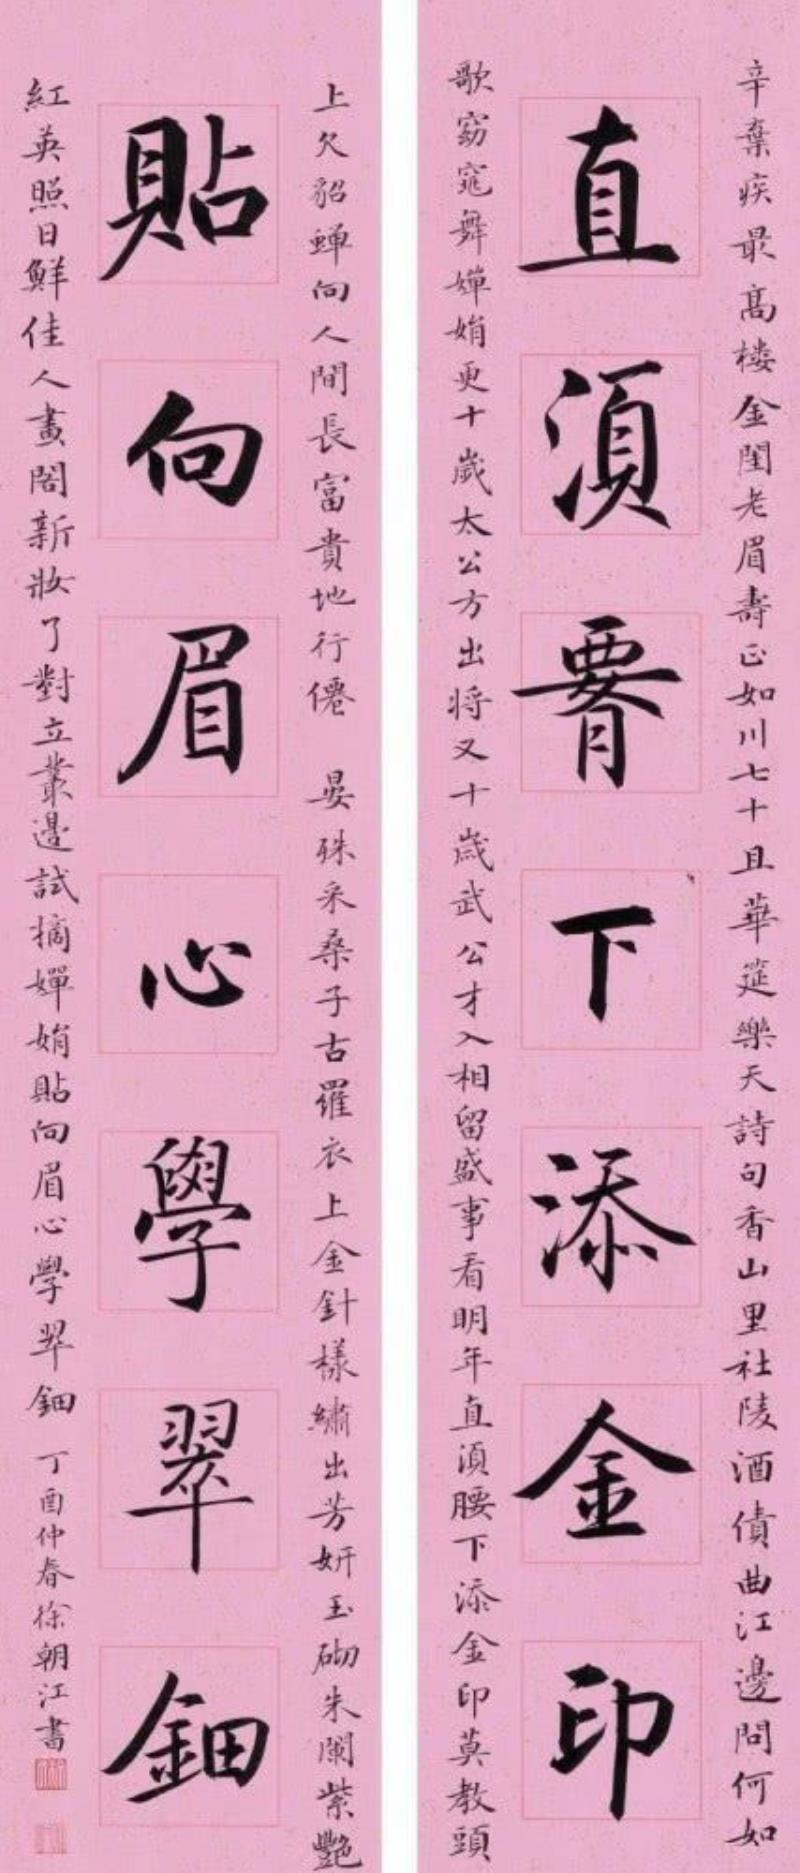 辛棄疾最髙楼金閨老眉壽正如川七十且華筵樂天詩句香山里杜陵酒債曲江邊問何如
直須腰下添金印
歌窈窕舞嬋娟更十歲太公方出将又十歲武公才入相留盛事看明年直須腰下添金印莫教頭
上欠貂蟬向人間長富貴地行僊 晏殊采桑子古羅衣上金針樣繡出芳妍玉砌朱闌紫艷
貼向眉心學翠鈿
紅英照日鮮佳人畫閣新妝了對立叢邊試摘嬋娟貼向眉心學翠鈿 丁酉仲春徐朝江書